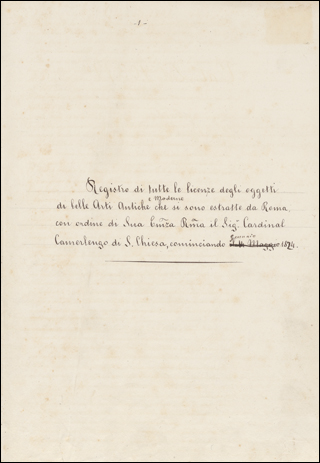 -1.-
Registro di tutte le licenze degli oggetti
e Moderne
di belle Arti Antiche che si sono estratte da Roma
con ordine di Sua Emza Rma il Sigr Cardinal
Gennaio
Camerlengo di S. Chiesa, cominciando Maggio 1874.